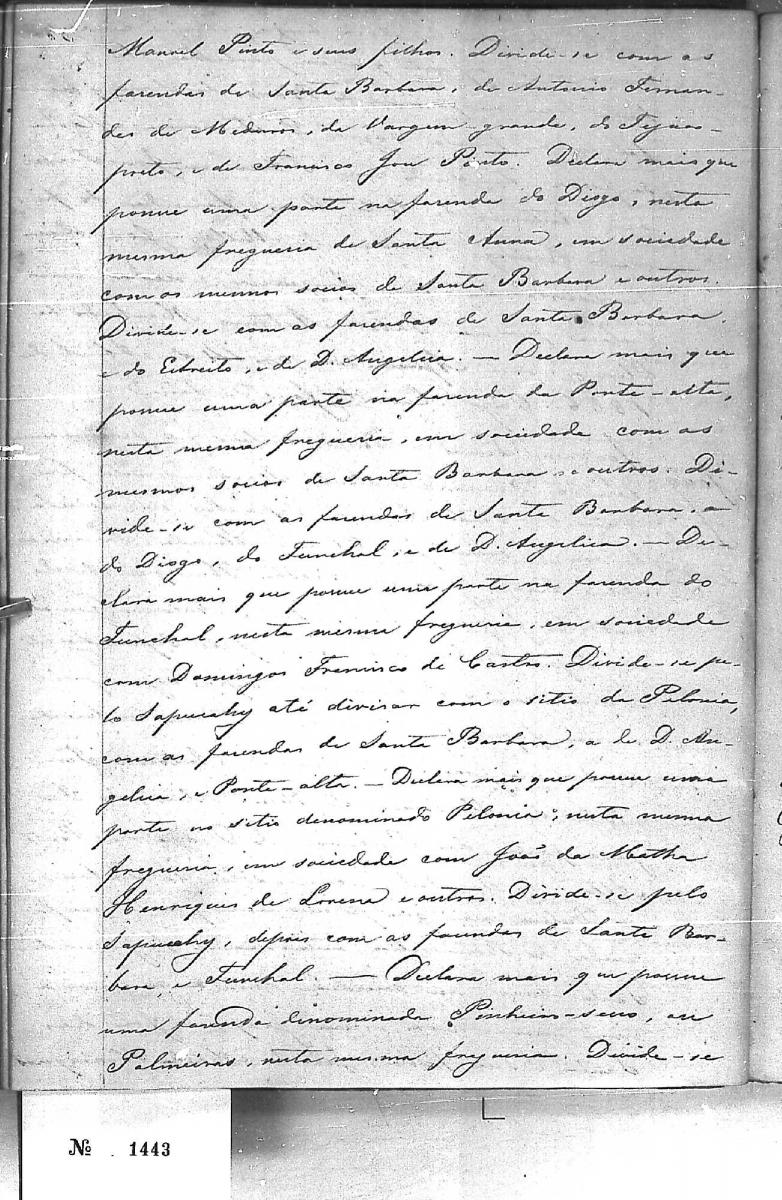 Manoel Pinto e seus filhos. Divide-se com as
fazendas de Santa Barbara, de Antonio Fernan-
des de Medeiros, da Vargem-grande, do Tejuco-
preto, e de Francisco José Pinto. Declara mais que
possue uma parte na fazenda do Diogo, nesta
mesma freguezia de Santa Anna, em sociedade
com os mesmos socios de Santa Barbara e outros.
Divide-se com as fazendas de Santa Barbara,
e do Estreito, e de D. Angelica. — Declara mais que
possue uma parte na fazenda da Ponte-alta,
nesta mesma freguezia, em sociedade com os
mesmos socios de Santa Barbara e outros. Di-
vide-se com as fazendas de Santa Barbara, a
do Diogo, do Funchal, e de D. Angelica. — De-
clara mais que possue uma parte na fazenda do
Funchal, nesta mesma freguezia, em sociedade
com Domingos Francisco de Castro. Divide-se pe-
lo Sapucahy até divisar com o sitio da Pelonia,
com as fazendas de Santa Barbara, a de D. An-
gelica, e Ponte-alta. — Declara mais que possue uma
parte no sitio denominado Pelonia, nesta mesma
freguezia, em sociedade com João da Matha
Henriques de Lorena e outros. Divide-se pelo
Sapucahy, depois com as fazendas de Santa Bar-
bara, e Funchal. — Declara mais que possue
uma fazenda denominada Pinheiro-seco, ou
Palmeiras, nesta mesma freguezia. Divide-se
№ . 1443